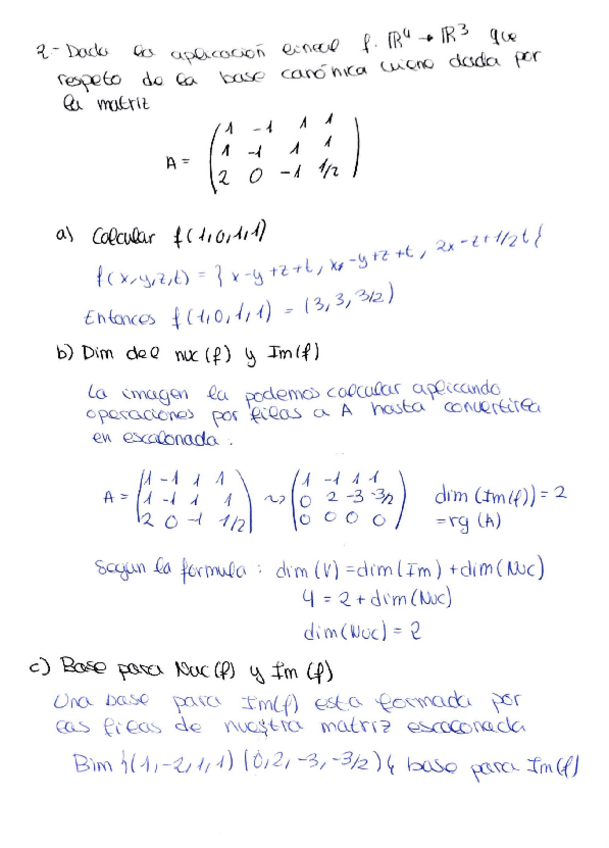 2.- Dada la aplicación lineal f: ℝ⁴ → ℝ³ que
respeto de la base canónica viene dada por
la matriz
A = (1 -1 1 1
1 -1 1 1
2 0 -1 1/2)
a) Calcular f(1,0,1,1)
f(x,y,z,t) = { x-y+z+t, x-y+z+t, 2x-z+1/2t {
Entonces f(1,0,1,1) = (3,3,3/2)
b) Dim del nuc(f) y Im(f)
La imagen la podemos calcular aplicando
operaciones por filas a A hasta convertirla
en escalonada:
A = (1 -1 1 1 ~> (1 -1 1 1
1 -1 1 1 0 2 -3 -3/2 dim(Im(f)) = 2
2 0 -1 1/2) 0 0 0 0) = rg(A)
Segun la formula: dim(V) = dim(Im) + dim(Nuc)
4 = 2 + dim(Nuc)
dim(Nuc) = 2
c) Base para Nuc(f) y Im(f)
Una base para Im(f) esta formada por
las filas de nuestra matriz escalonada
Bim {(1,-2,1,1) (0,2,-3,-3/2)} base para Im(f)